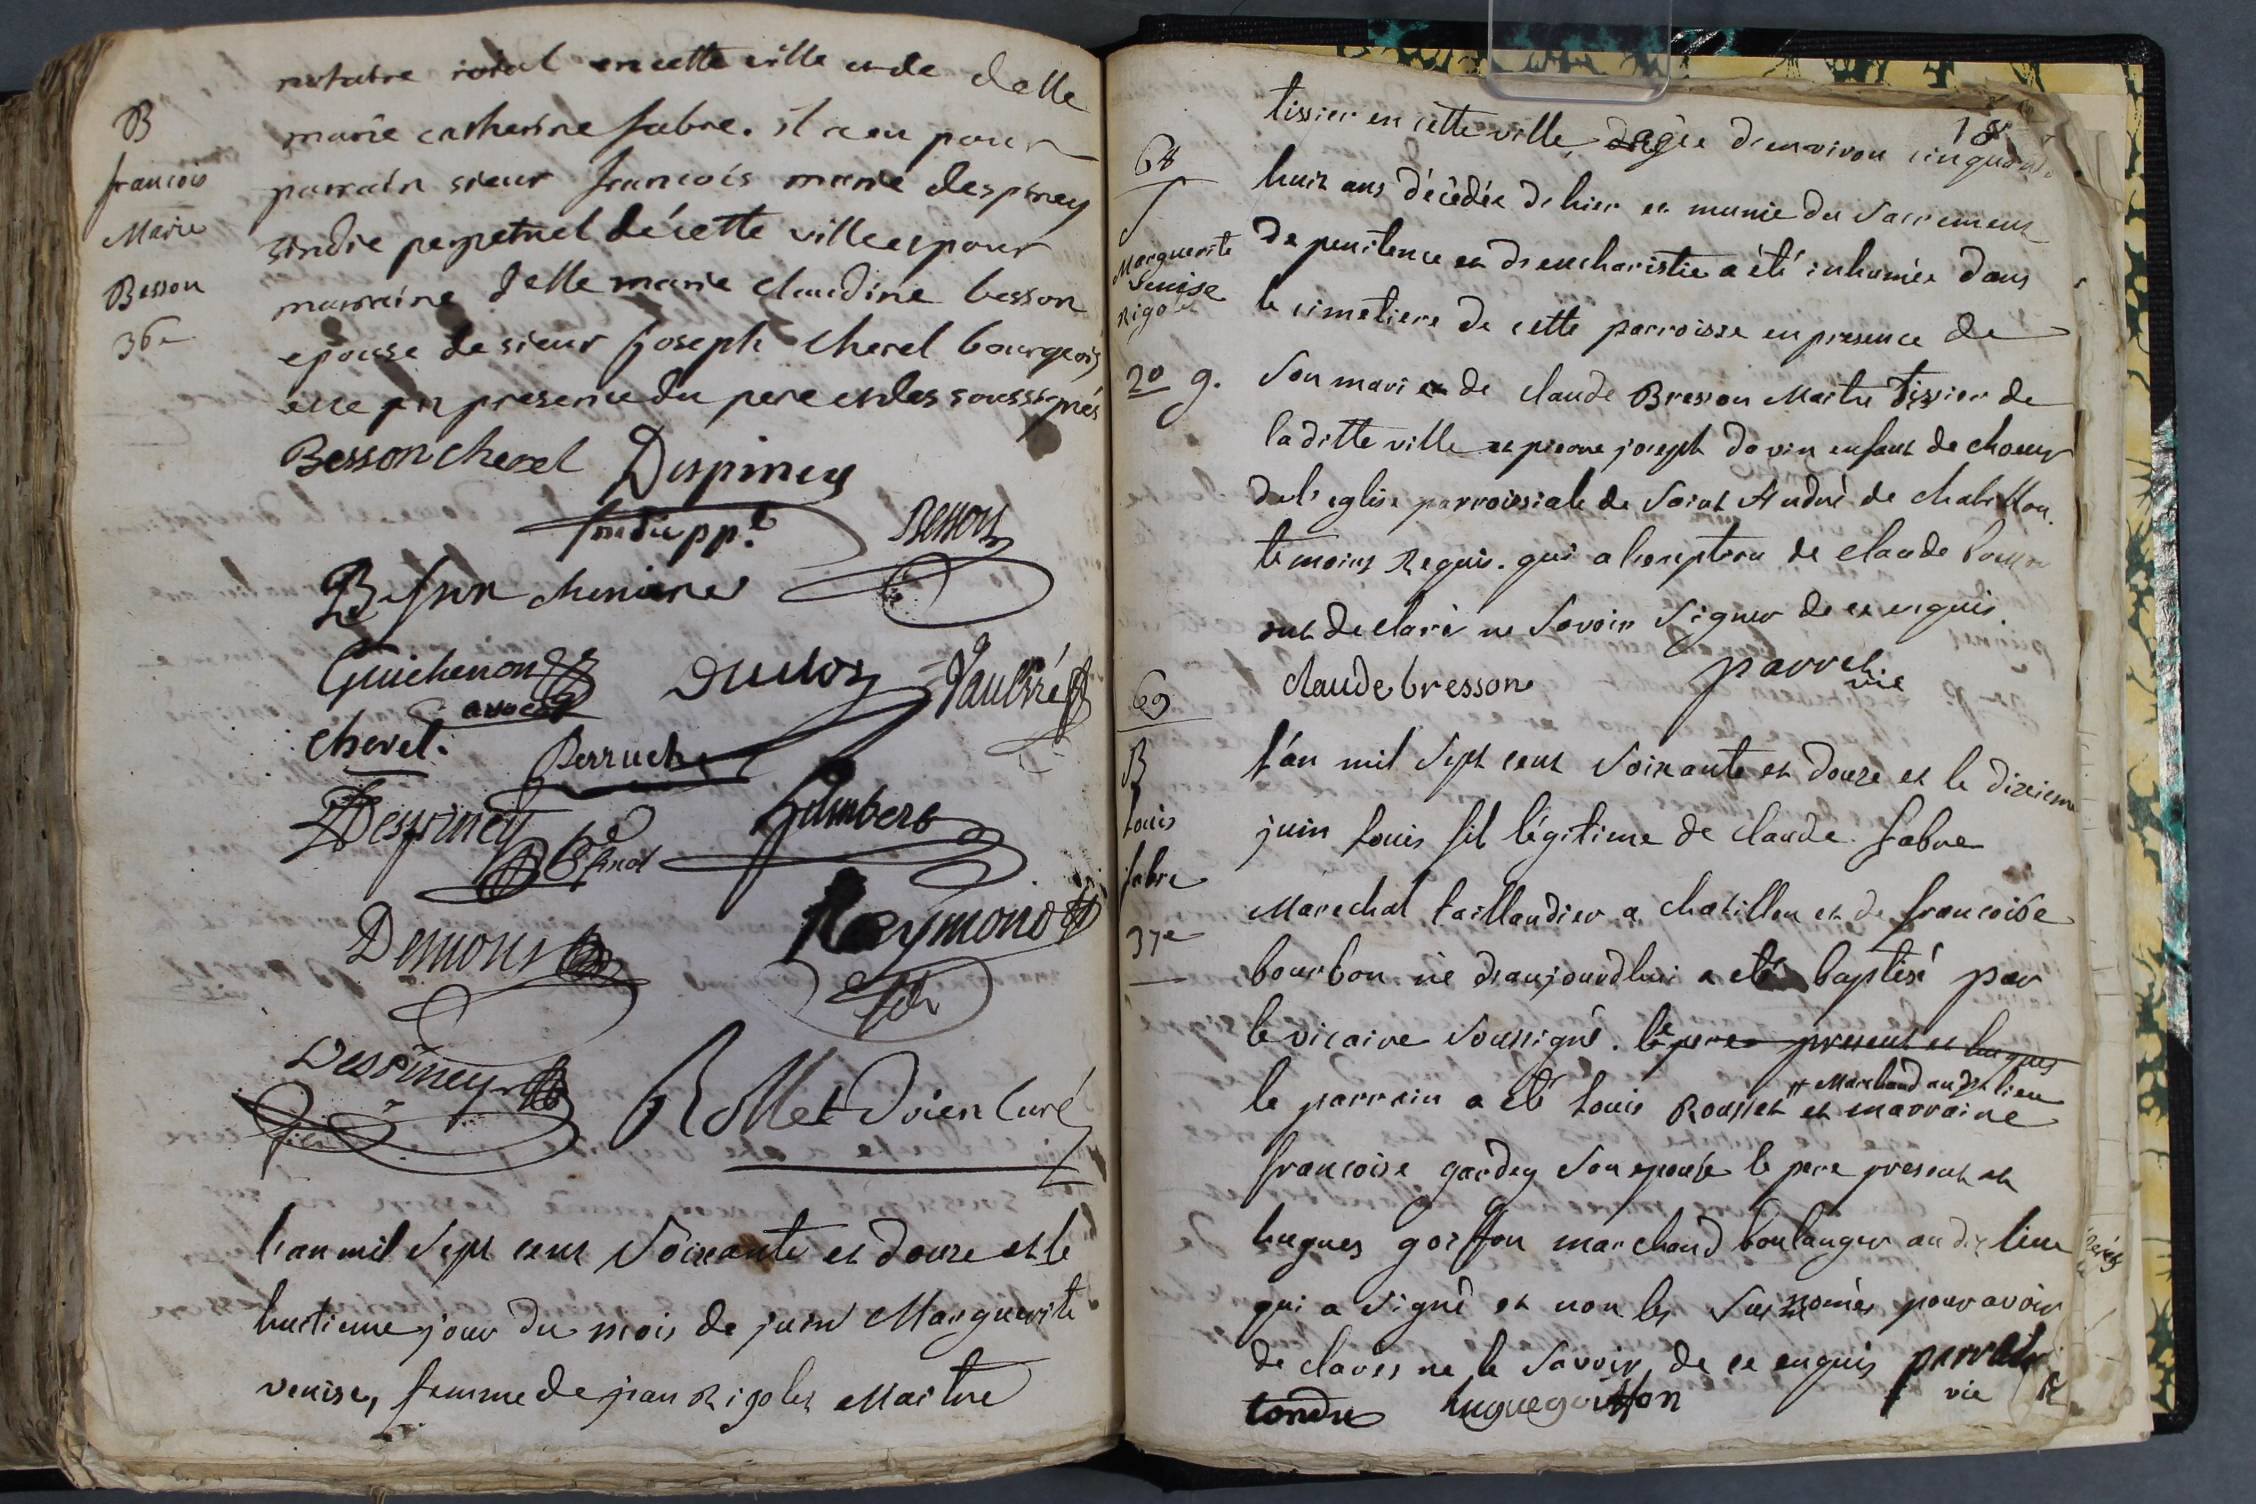 notaire roial en cette ville et de delle
B
marie catherine fabre. il a eu pour
francois
parrain sieur francois marie despiney
Marie
sindic perpetuel de cette ville et pour
Besson
marraine delle marie claudine besson
36e
epouse de sieur joseph cherel bourgeois
en presence du pere et des soussignés
Besson cherel Despiney
sindic pp.l Besson
Besson
Guichenon Duclos
avocat
cherel. Perruche
Despiney Humbert
Demons Reymond
fils
Despiney Rollet Doien Curé
fils
l'an mil sept cent soixante et douze et le
huitieme jour du mois de juin Marguerite
venise, femme de jean Rigolet Maitre
tissier en cette ville, agée d'environ cinquante
68
huit ans décédée d'hier et munie du sacrement
Marguerite
venise
Rigolet
de penitence et d'eucharistie a été inhumée dans
le cimetiere de cette parroisse en presence de
20 g. son mari et de claude Bresson Maitre tissier de
laditte ville et pierre joseph davin enfant de choeur
de l'eglise parroissiale de saint André de chatillon.
temoins Requis. qui a l'exeption de claude
ont declaré ne savoir signer de ce enquis.
claude bresson parret
vic
69
B
l'an mil sept cent soixante et douze et le dixieme
Louis
juin Louis fil légitime de claude fabre
fabre
Maréchal taillandier a chatillon et de francoise
37e
bourbon né d'aujourdhui a eté baptisé par
le vicaire soussigné. le pere present et hugues
Marchand audit lieu
le parrain a eté Louis Rousset et marraine
francoise gardey son epouse le pere present et
hugues goiffon marchand boulanger audit lieu
qui a signé et non les susnomés pour avoir
declarés ne le savoir, de ce enquis parret
tondu hugue goiffon vic